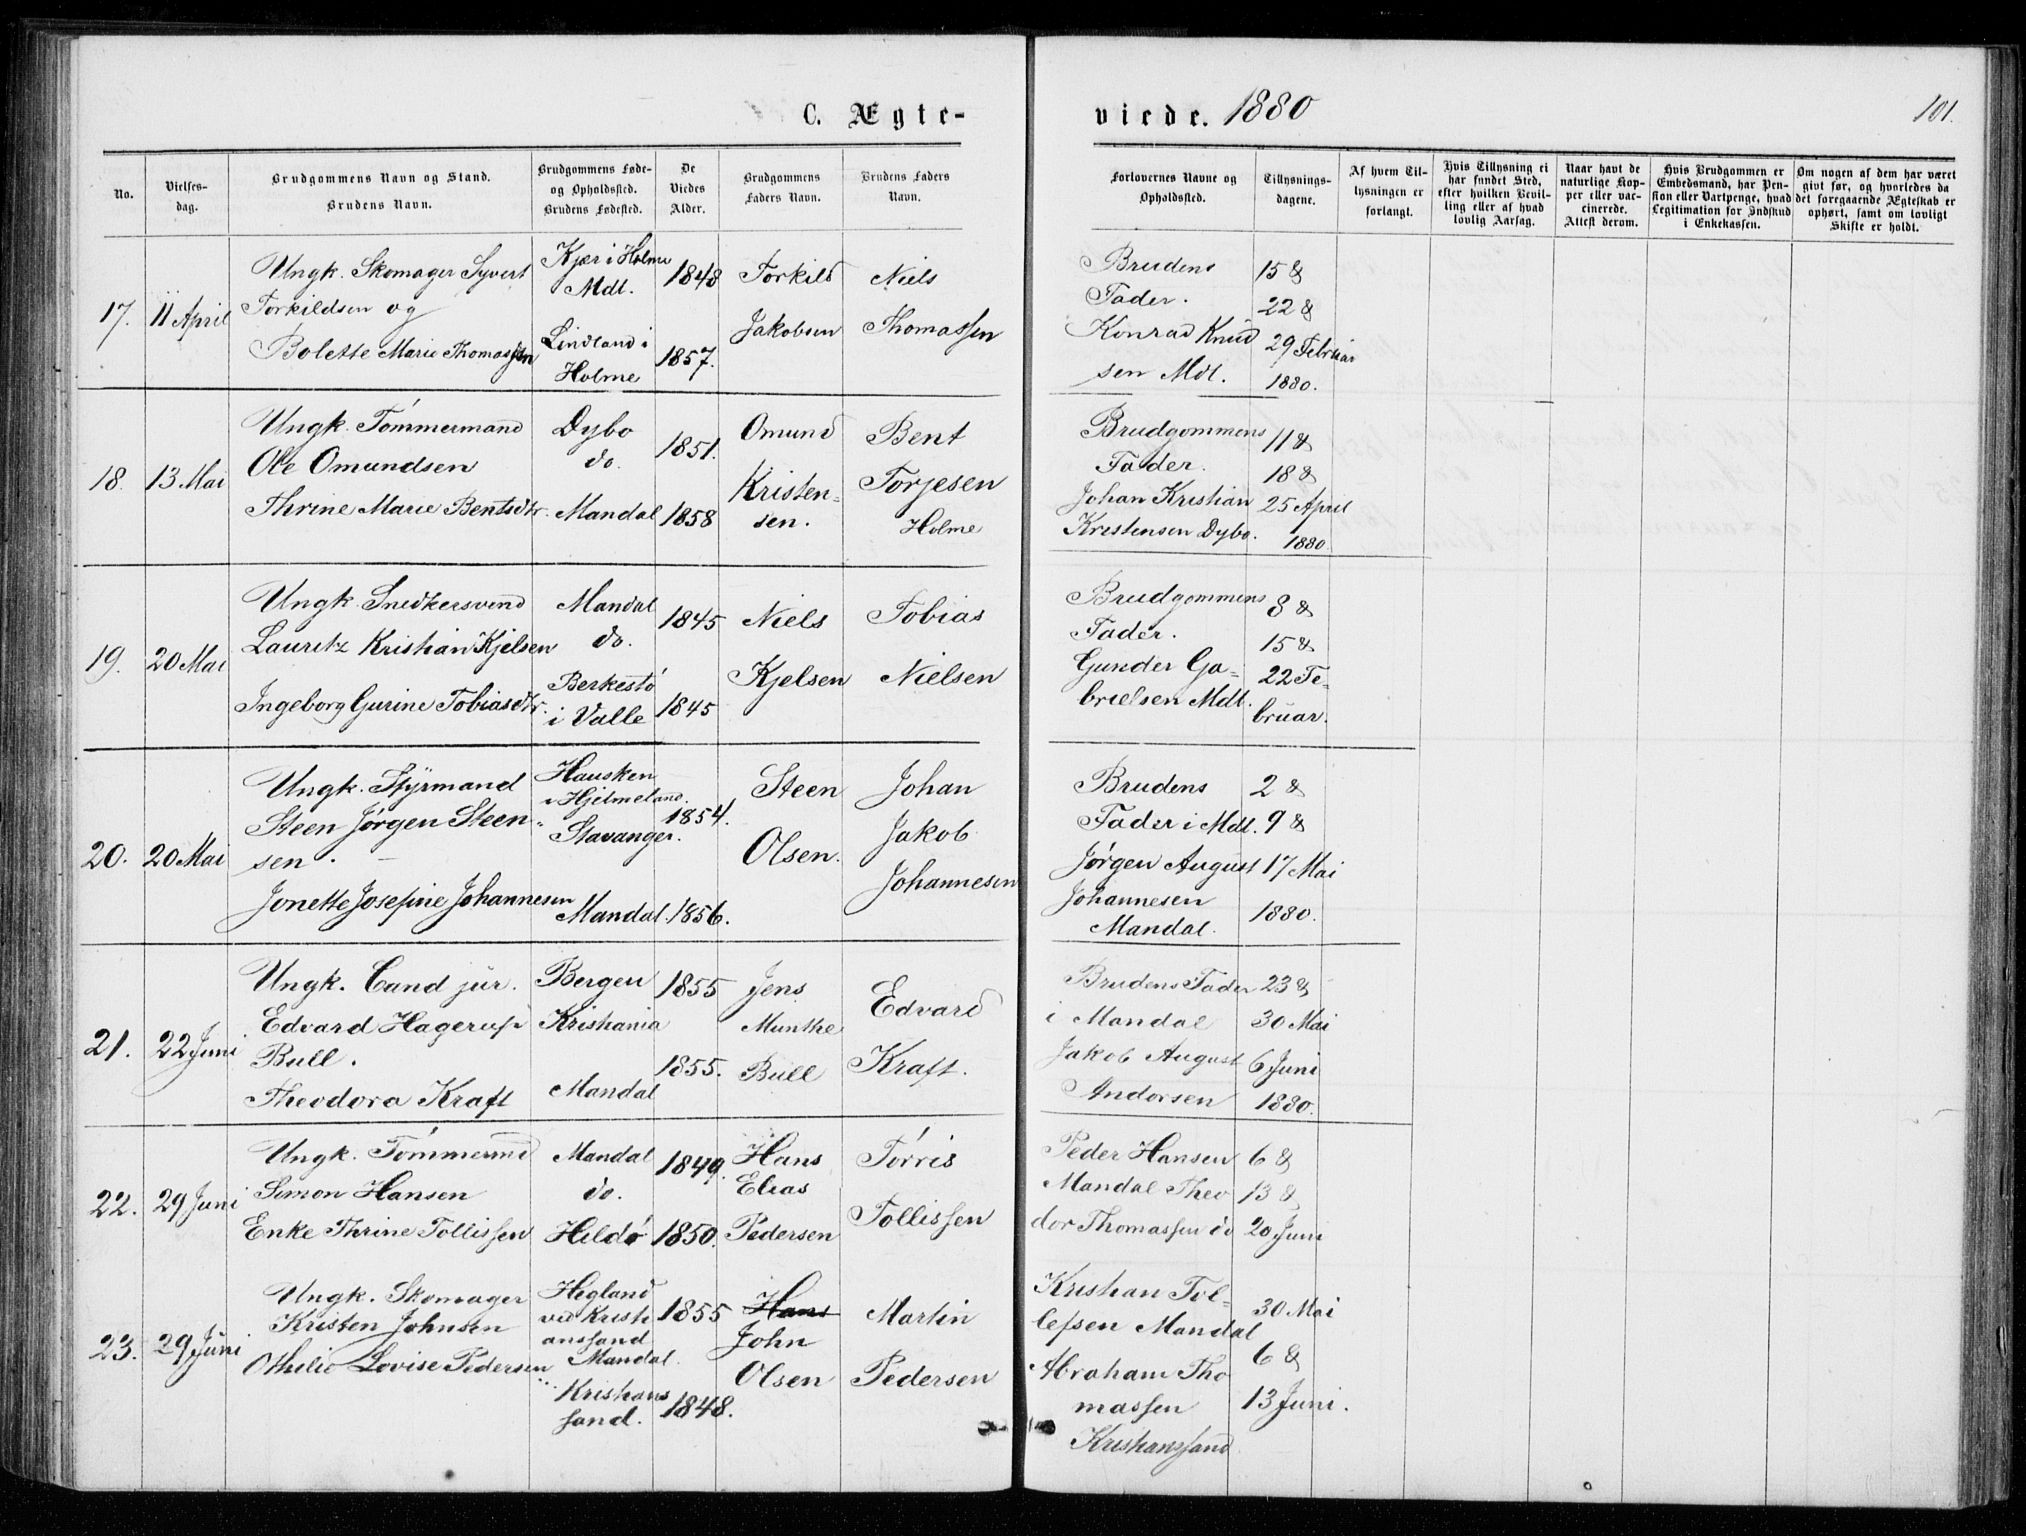 C. Ægte-
viede. 1880
101.
No.
Vielses-
dag.
Brudgommens Navn og Stand.
Brudens Navn.
Brudgommens Føde-
og Opholdssted.
Brudens Fødested.
De
Viedes
Alder.
Brudgommens
Faders Navn.
Brudens Faders
Navn.
Forlovernes Navne og
Opholdssted.
Tillysnings-
dagene.
Af hvem Til-
lysningen er
forlangt.
Hvis Tillysning ei
har fundet Sted,
efter hvilken Bevil-
ling eller af hvad
lovlig Aarsag.
Naar havt de
naturlige Kop-
per eller vac-
cinerede.
Attest derom.
Hvis Brudgommen er
Embedsmand, har Pen-
sion eller Vartpenge, hvad
Legitimation for Indskud
i Enkekassen.
Om nogen af dem har været
givt før, og hvorledes da
det foregaaende Ægteskab er
ophørt, samt om lovligt
Skifte er holdt.
17.
11 April
Ungk. Skomager Syvert
Torkildsen og
Bolette Marie Thomassen
Kjær i Holme
Mdl.
Lindland i
Holme
1848
1857.
Torkild
Jakobsen
Niels
Thomassen
Brudens
Fader.
Konrad Knud
sen Mdl.
15 &
22 &
29 Februar
1880.
18.
13 Mai
Ungk. Tömmermand
Ole Omundsen
Thrine Marie Bentsdtr.
Dybo
do.
Mandal
1851.
1858
Omund
Kristen-
sen.
Bent
Torjesen
Holme
Brudgommens
Fader.
Johan Kristian
Kristensen Dybo.
11 &
18 &
25 April
1880.
19.
20 Mai
Ungk. Snedkersvend
Lauritz Kristian Kjelsen
Ingeborg Gurine Tobiasdtr.
Mandal
do.
Berkestö
i Valle
1845
1845
Niels
Kjelsen
Tobias
Nielsen
Brudgommens
Fader.
Gunder Ga-
brielsen Mdl.
8 &
15 &
22 Fe-
bruar.
20.
20 Mai
Ungk. Styrmand
Steen Jørgen Steen-
sen.
Jonette Josefine Johannesen
Hausken
i Hjelmeland.
Stavanger.
Mandal.
1854.
1856.
Steen
Olsen.
Johan
Jakob
Johannesen
Brudens
Fader i Mdl.
Jørgen August
Johannesen
Mandal.
2 &
9 &
17 Mai
1880.
21.
22 Juni
Ungk. Cand jur.
Edvard Hagerup
Bull.
Theodora Kraft
Bergen
Kristiania
Mandal
1855
1855.
Jens
Munthe
Bull
Edvard
Kraft.
Brudens Fader
i Mandal
Jakob August
Andorsen
23 &
30 Mai
6 Juni
1880.
22.
29 Juni
Ungk. Tömmermd
Simon Hansen
Enke Thrine Tollissen
Mandal
do.
Hildö
1849.
1850.
Hans
Elias
Pedersen
Törris
Tollissen
Peder Hansen
Mandal Theo
dor Thomassen do
6 &
13 &
20 Juni
23.
29 Juni
Ungk. Skomager
Kristen Johnsen
Othilie Lovise Pedersen
Hegland
ved Kristi
anssand
Mandal.
Kristians
sand.
1855
1848.
Hans
John
Olsen
Martin
Pedersen
Kristian Tol-
lefsen Mandal
Abraham Tho
massen
Kristianssand
30 Mai
6 &
13 Juni.